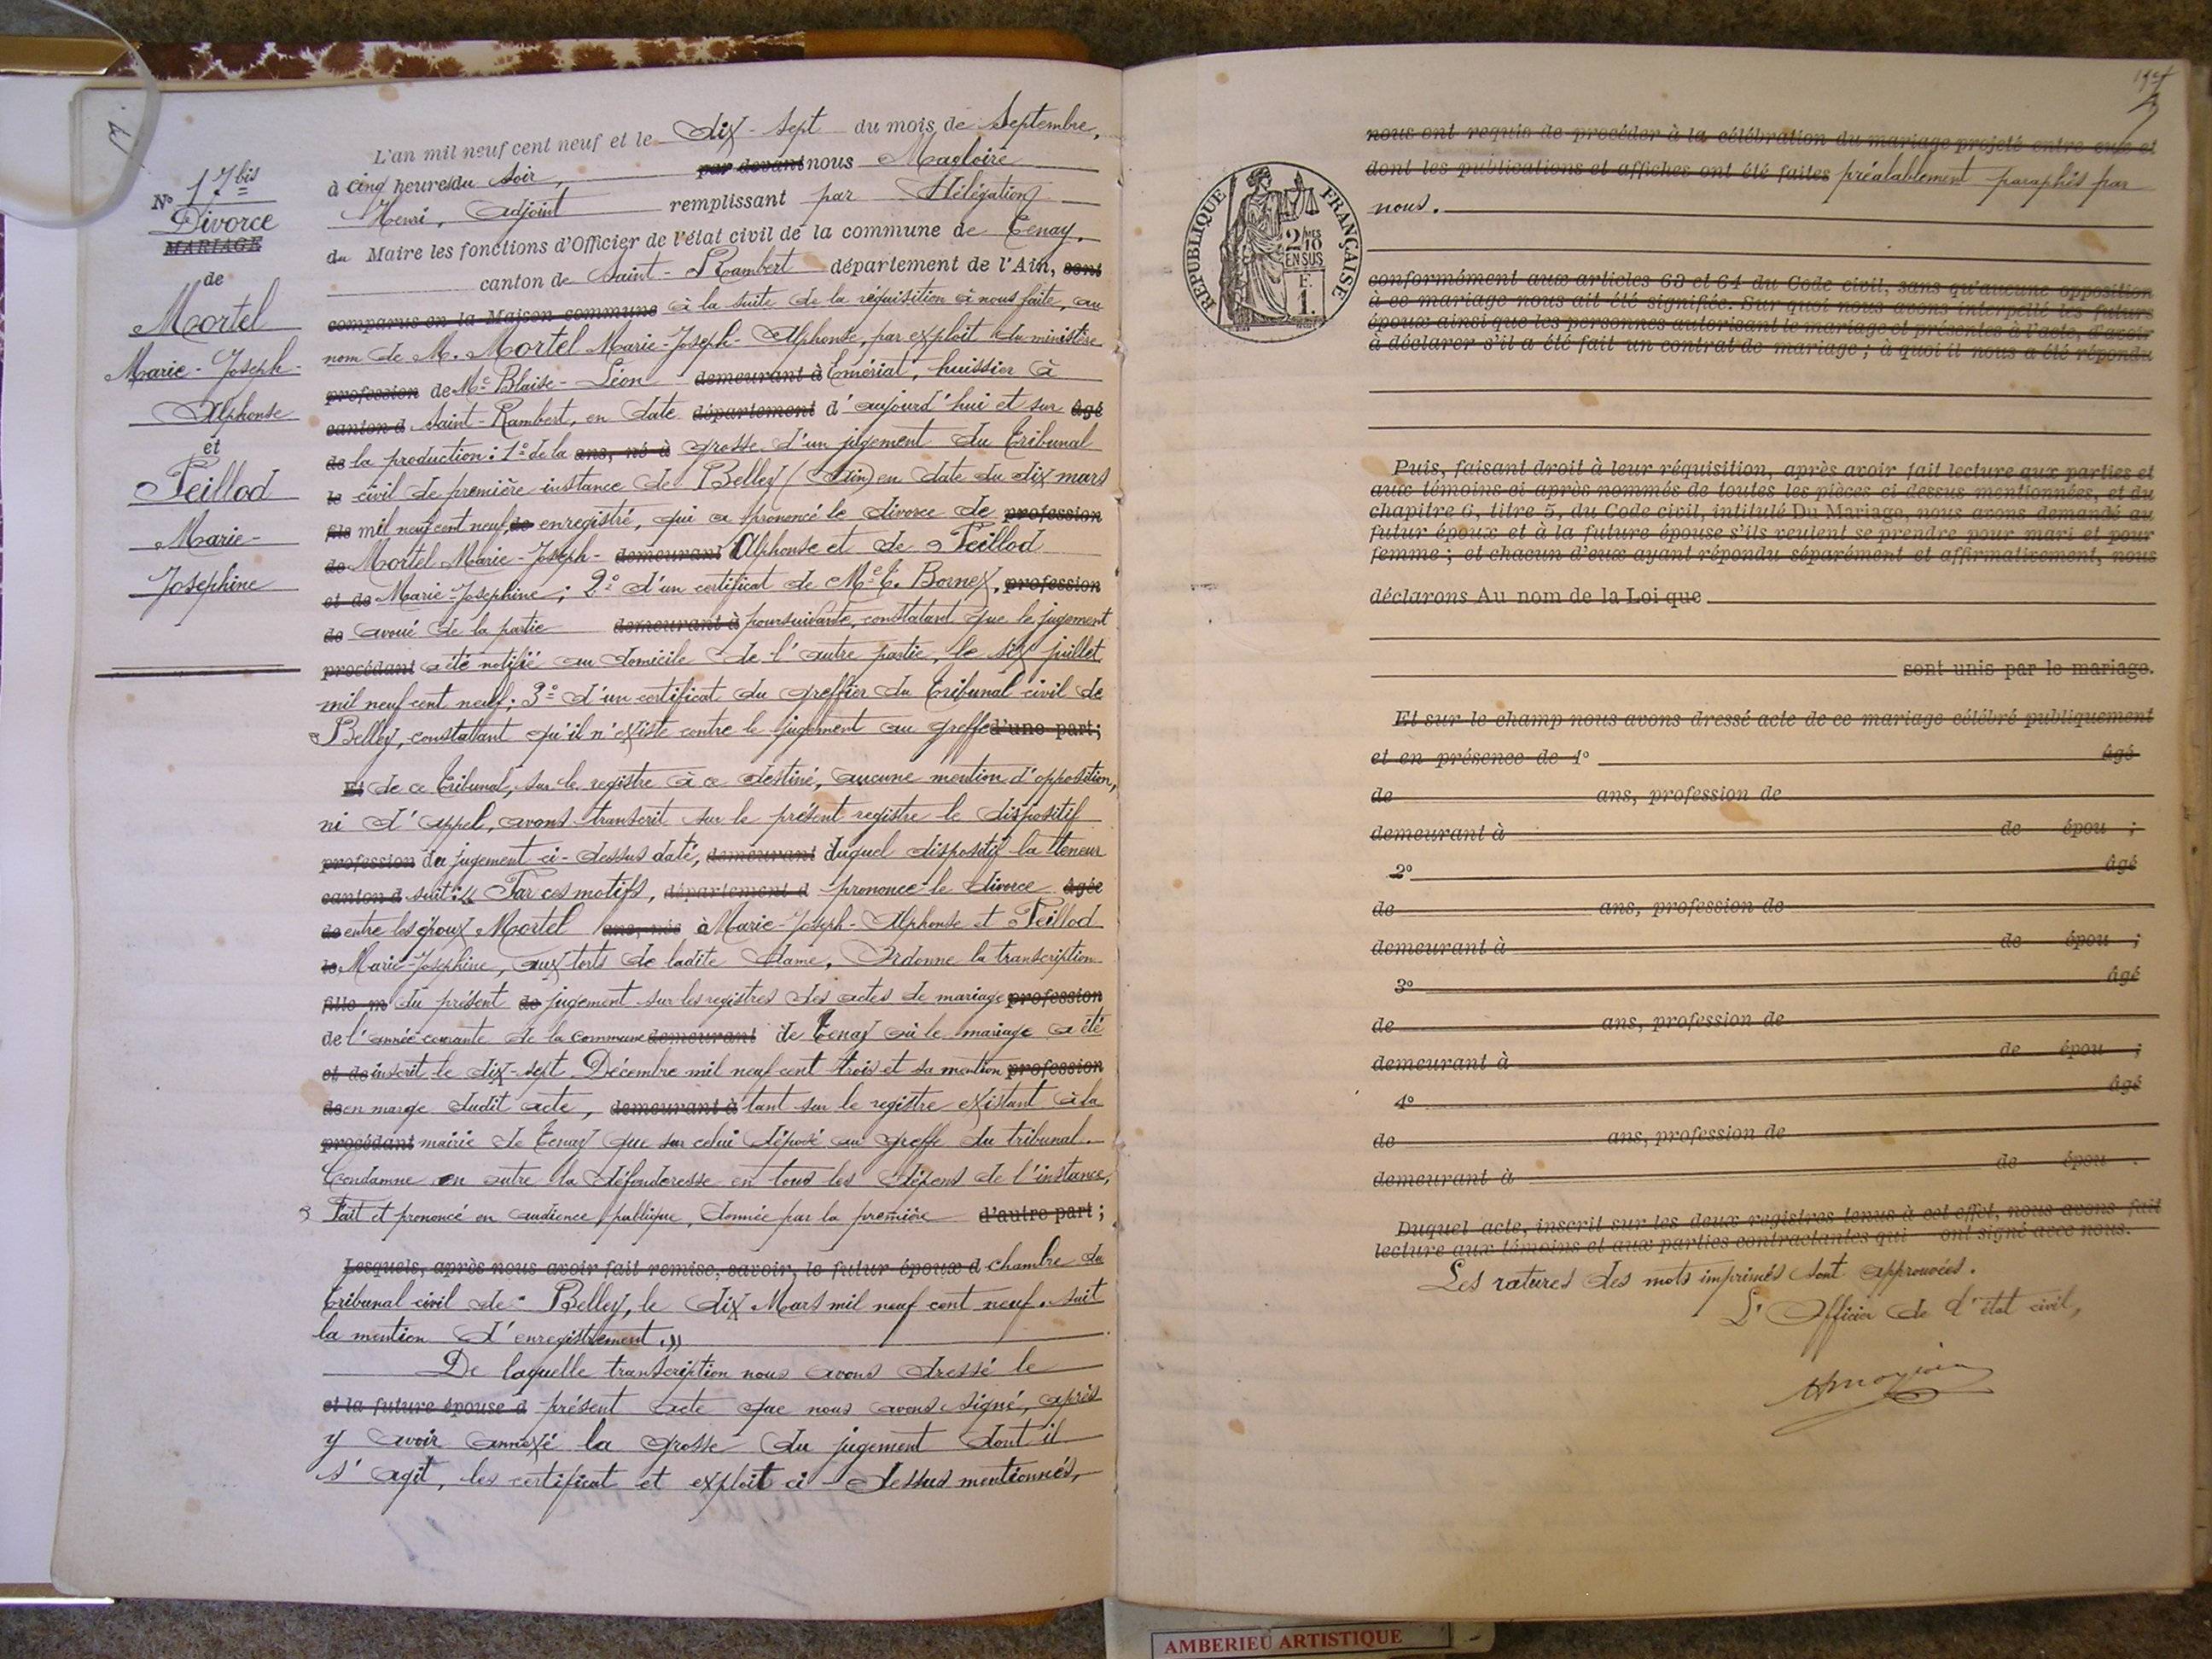 N° 17 bis
Divorce
MARIAGE
de
Mortel
Marie-Joseph-
Alphonse
et
Peillod
Marie-
Josephine
L'an mil neuf cent neuf et le Dix-sept du mois de Septembre,
à cinq heures du soir, par devant nous Magloire
Henri, Adjoint remplissant par Délégation
du Maire les fonctions d'Officier de l'état civil de la commune de Tenay,
canton de Saint-Rambert département de l'Ain, sont
comparus en la Maison commune à la suite de la réquisition à nous faite, au
nom de M. Mortel Marie-Joseph-Alphonse, par exploit du ministère
profession de Me Blaise-Léon demeurant à Emériat, huissier à
canton d Saint-Rambert, en date département d'aujourd'hui et sur âgé
de la production: 1° de la ans, né à grosse d'un jugement du Tribunal
le civil de première instance de Belley (Ain) en date du dix mars
fils mil neuf cent neuf, de enregistré, qui a prononcé le divorce de profession
de Mortel Marie-Joseph- demeurant Alphonse et de Peillod
et de Marie-Josephine; 2° d'un certificat de Me E. Bornex, profession
de avoué de la partie demeurant à poursuivante, constatant que le jugement
procédant a été notifié au domicile de l'autre partie, le six juillet
mil neuf cent neuf; 3° d'un certificat du greffier du Tribunal civil de
Belley, constatant qu'il n'existe contre le jugement au greffe d'une part;
Et de ce Tribunal, sur le registre à ce destiné, aucune mention d'opposition,
ni d'appel, avons transcrit sur le présent registre le dispositif
profession du jugement ci-dessus daté, demeurant duquel dispositif la teneur
canton d suit: « Par ces motifs, département d prononce le divorce âgée
de entre les époux Mortel ans, née à Marie-Joseph-Alphonse et Peillod
le Marie-Josephine, aux torts de ladite Dame, Ordonne la transcription
fille m du présent de jugement sur les registres des actes de mariage profession
de l'année courante de la commune demeurant de Tenay où le mariage a été
et de inscrit le dix-sept Décembre mil neuf cent trois et sa mention profession
de en marge dudit acte, demeurant à tant sur le registre existant à la
procédant mairie de Tenay que sur celui déposé au greffe du tribunal.
Condamne en outre la défenderesse en tous les dépens de l'instance,
Fait et prononcé en audience publique, donnée par la première d'autre part;
Lesquels, après nous avoir fait remise, savoir, le futur époux d chambre du
Tribunal civil de Belley, le dix Mars mil neuf cent neuf. suit
la mention d'enregistrement.»
De laquelle transcription nous avons dressé le
et la future épouse d présent acte que nous avons signé, après
y avoir annexé la grosse du jugement dont il
s'agit, les certificat et exploit ci-dessus mentionnés,
RÉPUBLIQUE FRANÇAISE
2/10MES
EN SUS
F.
1.
nous ont requis de procéder à la célébration du mariage projeté entre eux et
dont les publications et affiches ont été faites préalablement paraphés par
nous.
conformément aux articles 63 et 64 du Code civil, sans qu'aucune opposition
à ce mariage nous ait été signifiée. Sur quoi nous avons interpellé les futurs
époux ainsi que les personnes autorisant le mariage et présentes à l'acte, d'avoir
à déclarer s'il a été fait un contrat de mariage; à quoi il nous a été répondu
Puis, faisant droit à leur réquisition, après avoir fait lecture aux parties et
aux témoins ci après nommés de toutes les pièces ci dessus mentionnées, et du
chapitre 6, titre 5, du Code civil, intitulé Du Mariage, nous avons demandé au
futur époux et à la future épouse s'ils veulent se prendre pour mari et pour
femme; et chacun d'eux ayant répondu séparément et affirmativement, nous
déclarons Au nom de la Loi que
sont unis par le mariage.
Et sur le champ nous avons dressé acte de ce mariage célébré publiquement
et en présence de 1° âgé
de ans, profession de
demeurant à de épou ;
2° âgé
de ans, profession de
demeurant à de épou ;
3° âgé
de ans, profession de
demeurant à de épou ;
4° âgé
de ans, profession de
demeurant à de épou .
Duquel acte, inscrit sur les deux registres tenus à cet effet, nous avons fait
lecture aux témoins et aux parties contractantes qui ont signé avec nous.
Les ratures des mots imprimés sont approuvées.
L'Officier de l'état civil,
AMBERIEU ARTISTIQUE